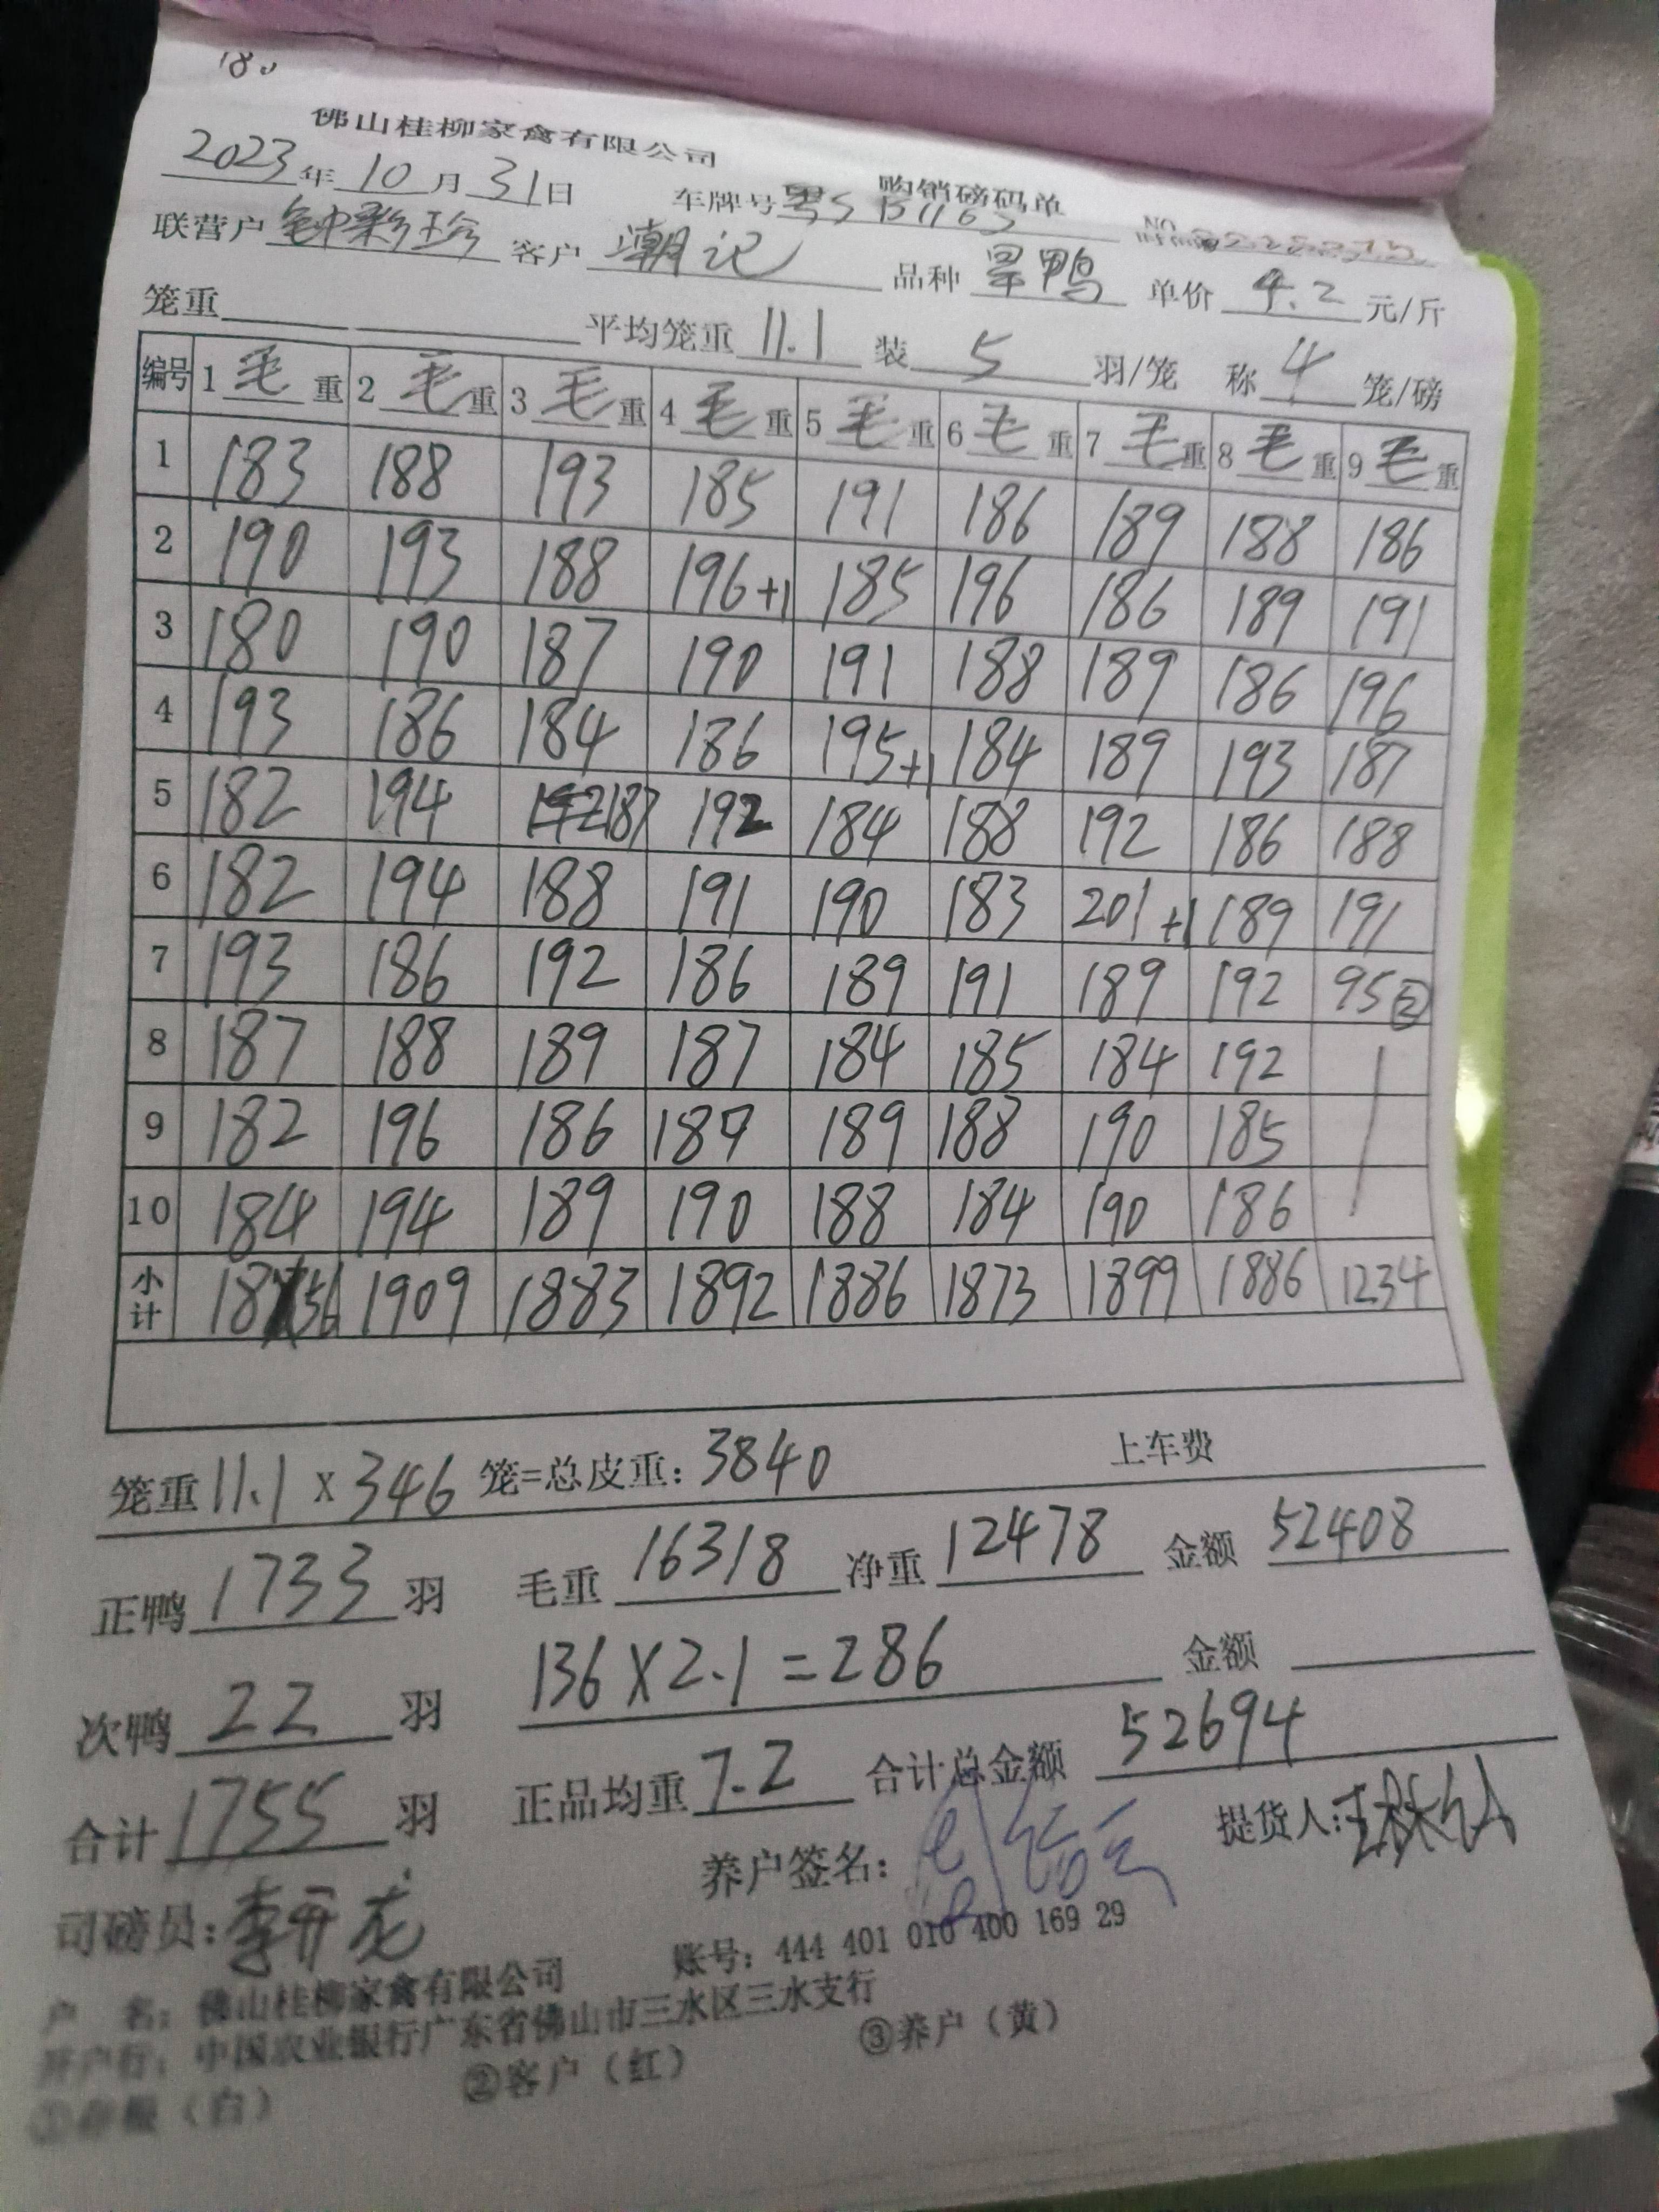 180
佛山桂柳家禽有限公司
购销磅码单
2023年10月31日 车牌号 粤S B1163 NO
联营户 钟彩珍 客户 潮记 品种 旱鸭 单价 4.2 元/斤
笼重 平均笼重 11.1 装 5 羽/笼 称 4 笼/磅
编号 1 毛重 2 毛重 3 毛重 4 毛重 5 毛重 6 毛重 7 毛重 8 毛重 9 毛重
1 183 188 193 185 191 186 189 188 186
2 190 193 188 196+1 185 196 186 189 191
3 180 190 187 190 191 188 189 186 196
4 193 186 184 186 195+1 184 189 193 187
5 182 194 187 192 184 188 192 186 188
6 182 194 188 191 190 183 201+1 189 191
7 193 186 192 186 189 191 189 192 95②
8 187 188 189 187 184 185 184 192
9 182 196 186 189 189 188 190 185
10 184 194 189 190 188 184 190 186
小计 1856 1909 1883 1892 1886 1873 1899 1886 1234
笼重 11.1 x 346 笼=总皮重: 3840 上车费
正鸭 1733 羽 毛重 16318 净重 12478 金额 52408
次鸭 22 羽 136 X 2.1 = 286 金额
合计 1755 羽 正品均重 7.2 合计总金额 52694
司磅员: 李开龙 养户签名: 提货人:
户 名: 佛山桂柳家禽有限公司 账号: 444 401 010 400 169 29
开户行: 中国农业银行广东省佛山市三水区三水支行
①存根(白) ②客户(红) ③养户(黄)